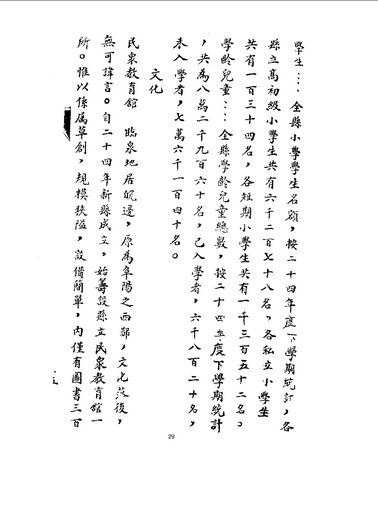 學生：…全縣小學學生名額，按二十四年度下學期統計，各
縣立高初級小學生共有六千二百七十八名，各私立小學生
共有一百三十四名，各短期小學生共有一千三百五十二名。
學齡兒童：…全縣學齡兒童總數，按二十四年度下學期統計
，共為八萬二千九百六十名，已入學者，六千八百二十名，
未入學者，七萬六千一百四十名。
文化
民衆教育館　臨泉地居皖邊，原為阜陽之西鄙，文化落後，
無可諱言。自二十四年新縣成立，始籌設縣立民衆教育館一
所。惟以係屬草創，規模狹隘，設備簡單，內僅有圖書三百
29